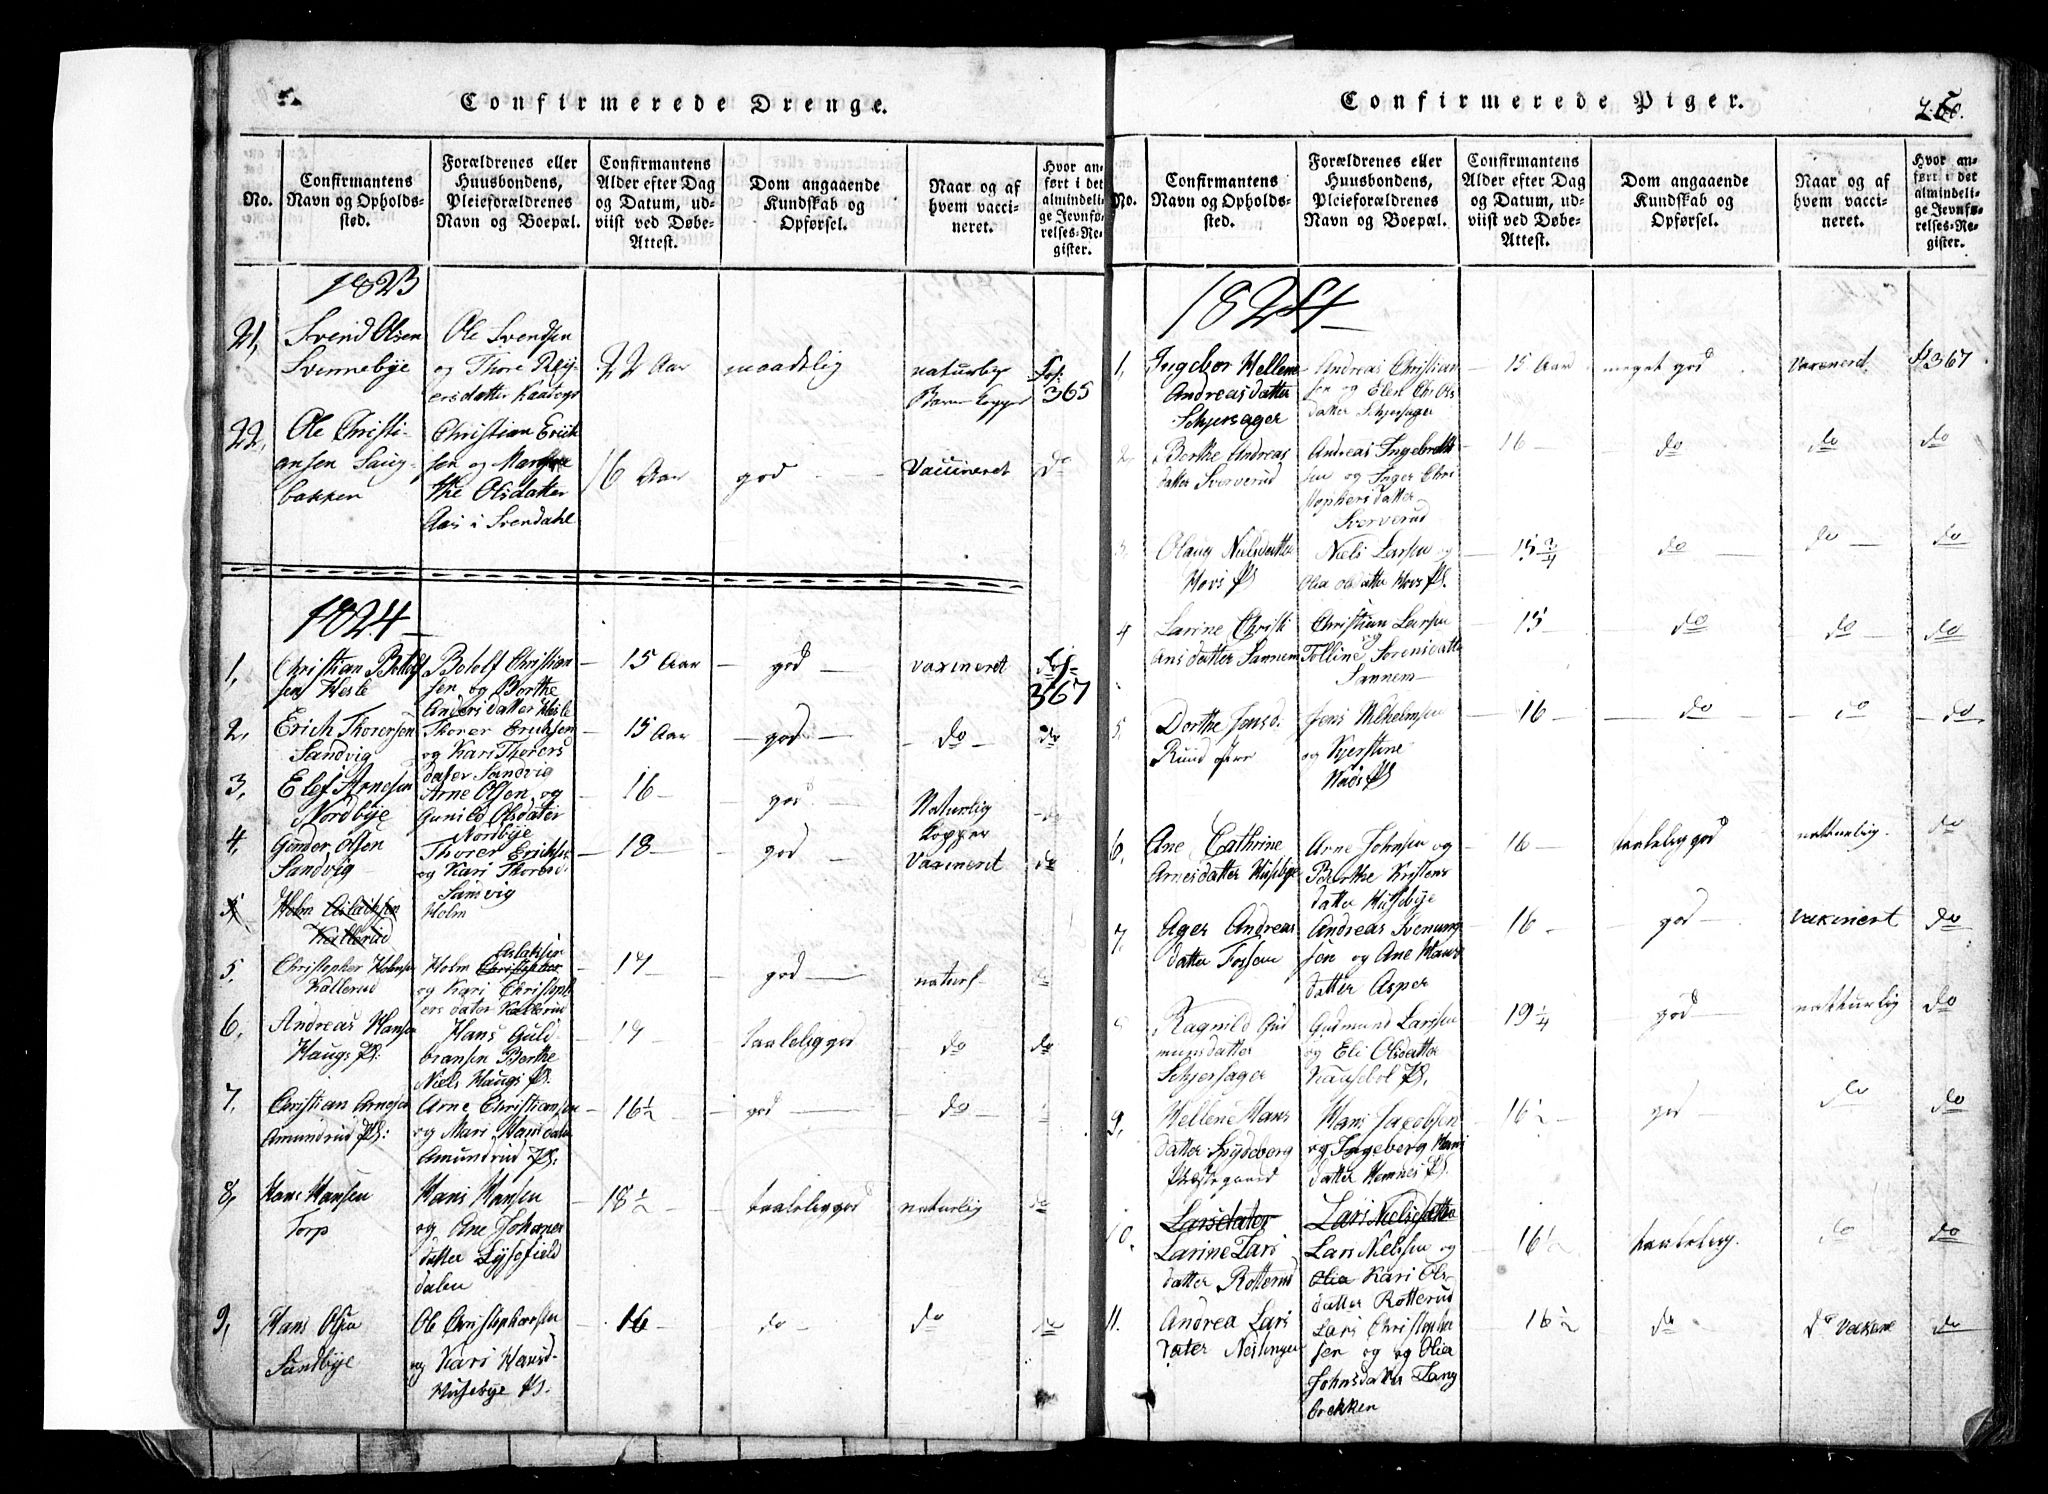 Confirmerede Drenge.
No.
Confirmantens
Navn og Opholds-
sted.
Forældrenes eller
Huusbondens,
Pleieforældrenes
Navn og Boepæl.
Confirmantens
Alder efter Dag
og Datum, ud-
viist ved Døbe-
Attest.
Dom angaaende
Kundskab og
Opførsel.
Naar og af
hvem vacci-
neret.
Hvor an-
ført i det
almindeli-
ge Jevnfø-
relses-Re-
gister.
1823
21,
Svend Olsen
Svennebye
Ole Svendsen
og Thore
ersdatter
22 Aar
maadelig
naturlig
Fol:
365
22,
Ole Christi-
ansen Laug-
bakken
Christian Erik
sen og Margre
the Olsdatter
Aas i Svendahl
16 Aar
god
Vaccineret
do
1824
1,
Christian Bololf
sen Hesle
Bololf Christian
sen og Borthe
Andersdatter Hesle
15 Aar
god
vaxineret
Fol
367
2,
Erich Thorersen
Sandvig
Thorer Eriksen
og Kari Thorers
dater Sandvig
15 Aar
god
do
do
3,
Elef Arnesen
Nordbye
Arne Olsen og
Gunild Olsdater
Nordbye
16
god
Naturlig
Kopper
do
4,
Gunder Olsen
Sandvig
Thorer Eriksen
og Kari Thorersd
Sandvig
18
god
Vaxineret
do
5
Holm Aslaksen
Kallerud
Holm
5.
Christopher Holmsen
Kallerud
Holm Christopher Aslaksen
og Kari Christoph
ers dater Kallerud
17
god
naturl
do
6,
Andreas Hansen
Haugs Pl:
Hans Guld-
bransen Berthe
Niels Haugs Pl.
17
taalelig god
do
do
7,
Christian Arnesen
Amundrud Pl:
Arne Christiansen
og Mari Hansdater
Amundrud Pl:
16½
god
do
8,
Hans Hansen
Torp
Hans Hansen
og Ane Johanes
datter Lysefield
dalen
18½
taalelig god
naturlig
do
9,
Hans Olsen
Sandbye
Ole Christophersen
og Kari Hansd.
Husebye Pl.
16
do
do
do
Confirmerede Piger.
No.
Confirmantens
Navn og Opholds-
sted.
Forældrenes eller
Huusbondens,
Pleieforældrenes
Navn og Boepæl.
Confirmantens
Alder efter Dag
og Datum, ud-
viist ved Døbe-
Attest.
Dom angaaende
Kundskab og
Opførsel.
Naar og af
hvem vacci-
neret.
Hvor an-
ført i det
almindeli-
ge Jevnfø-
relses-Re-
gister.
1824
1,
Ingebor Hellene
Andreasdatter
Schjersager
Andreas Christian
sen og Elen Chr Ols
datter Schjersager
15 Aar
meget god
Vaxinerd.
367
2
Berthe Andreas
datter Sververud
Andreas Ingebreth
sen og Inger Chri
stophersdatter
Sververud
16
do
do
do
3.
Olaug Nielsdatter
Hovs Pl
Niels Larsen og
Olia olsdatter Hovs Pl.
15¾
do
do
do
4
Larine Christi
ansdatter Sannem
Christian Larsen
og
Tolline Sorensdatter
Sannem
15
do
do
do
5.
Dorthe Jensd.
Ruud
Jens Wilhelmsen
og Kjerstine
Pl
16
do
do
do
6,
Ane Cathrine
Arnesdatter Husebye
Arne Johnsen og
Berthe Kristens
datter Husebye
16
taalelig god
natturlig.
do
7.
Ager Andreas
datter Fossum
Andreas Svenung
sen og Ane Hans
datter Asper
16
god
vaxinert
do
8
Ragnild Gud
munsdatter
Schjersager
Gudmund Larssen
og Eli Olsdatter
Pl.
19¼
god
natturlig
do
9,
Hellene Hans
datter Spydeberg
Præstegaard
Hans Jacobsen
og Ingeberg Hans
datter Hemnes Pl.
16½
god
do
do
10.
Larsdater
Larine Lars
datter Rotterud
Lars Nielsdatter
Lars Nielsen og
Olia Kari Ols-
datter Rotterud
16½
taalelig.
do
do
11.
Andrea Lars
dater
Lars Christopher
sen og og Olia
Johnsdatter Lang
brekken
16½
do
do
do